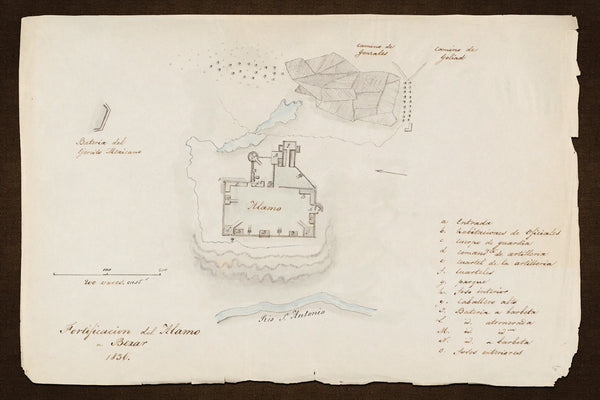 camino de
Gonzales
camino de
Goliad
Bateria del
Ejercito Mexicano
Alamo
200 varas cast.s
Rio S. Antonio
Fortificacion del Alamo
a Bexar
1836.
a Entrada
b. habitaciones de oficiales
c. cuerpo de guardia
d. comand.a de artilleria
e. cuartel de la artilleria
f. Cuarteles
g. parque
h. foso interior
y. Caballero alto
J. Bateria a barbeta
L. id.
M. id. id.
N. id. a barbeta
O. fosos exteriores